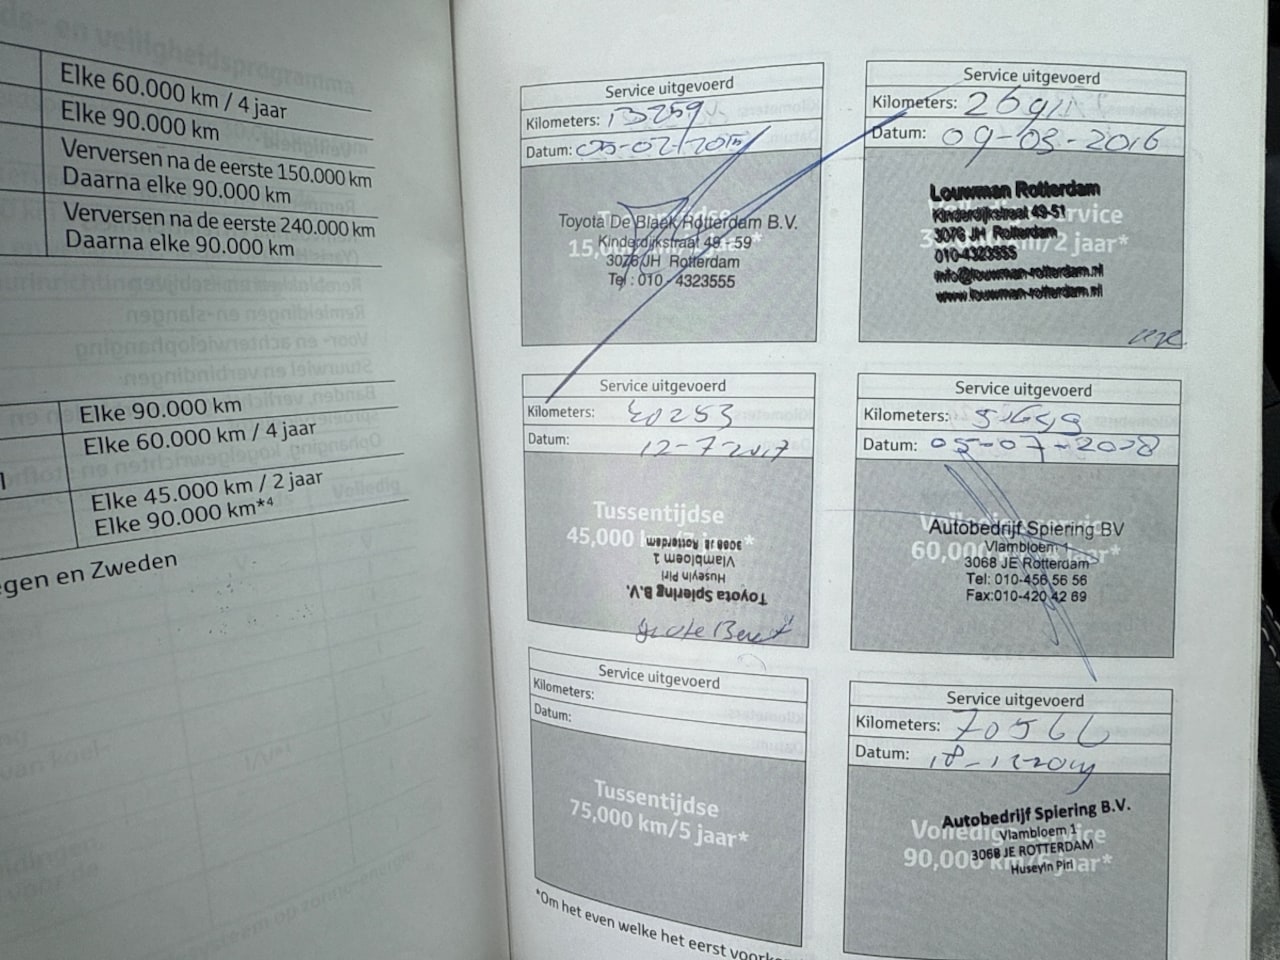 Elke 60.000 km / 4 jaar
Elke 90.000 km
Verversen na de eerste 150.000 km
Daarna elke 90.000 km
Verversen na de eerste 240.000 km
Daarna elke 90.000 km
Elke 90.000 km
Elke 60.000 km / 4 jaar
Elke 45.000 km / 2 jaar
Elke 90.000 km*4
egen en Zweden
Service uitgevoerd
Kilometers: 13259
Datum:
Toyota De Blaak Rotterdam B.V.
Kinderdijkstraat 49 - 59
3076 JH Rotterdam
Tel : 010 - 4323555
Service uitgevoerd
Kilometers:
Datum: 09-03-2016
Louwman Rotterdam
Kinderdijkstraat 49-51
3076 JH Rotterdam
010-4323555
info@louwman-rotterdam.nl
www.louwman-rotterdam.nl
Service uitgevoerd
Kilometers: 40253
Datum: 12-7-2017
Tussentijdse
45,000
Toyota Spiering B.V.
Huseyin Piri
Vlambloem 1
3068 JE Rotterdam
Grote Beurt
Service uitgevoerd
Kilometers:
Datum: 05-07-2018
60,000
Autobedrijf Spiering BV
Vlambloem 1
3068 JE Rotterdam
Tel: 010-456 56 56
Fax:010-420 42 69
Service uitgevoerd
Kilometers:
Datum:
Tussentijdse
75,000 km/5 jaar*
Service uitgevoerd
Kilometers: 70566
Datum:
Volledige service
90,000 km/6 jaar*
Autobedrijf Spiering B.V.
Vlambloem 1
3068 JE ROTTERDAM
Huseyin Piri
*Om het even welke het eerst